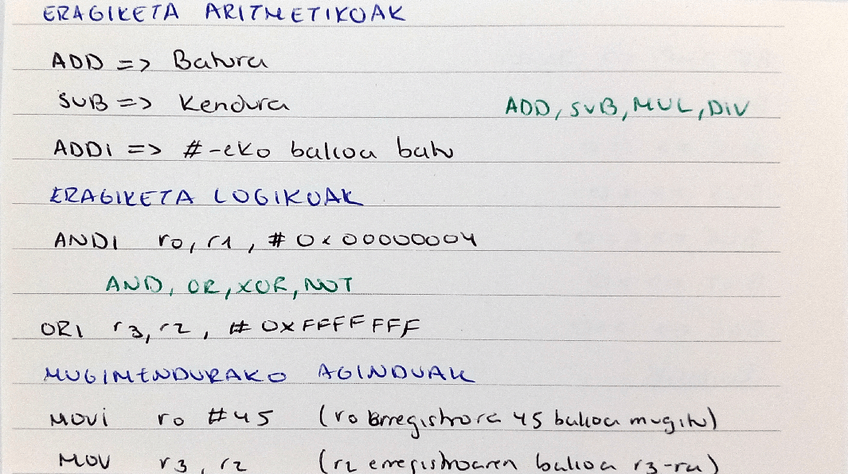 ERAGIKETA ARITMETIKOAK
ADD => Batura
SUB => Kendura
ADD, SUB, MUL, DIV
ADDi => #-eko balioa batu
ERAGIKETA LOGIKOAK
ANDI r0, r1, #0x00000004
AND, OR, XOR, NOT
ORI r3, r2, #0xFFFFFFF
MUGIMENDURAKO AGINDUAK
MOVi r0 #45 (r0 erregistrora 45 balioa mugitu)
MOV r3, r2 (r2 erregistroaren balioa r3-ra)